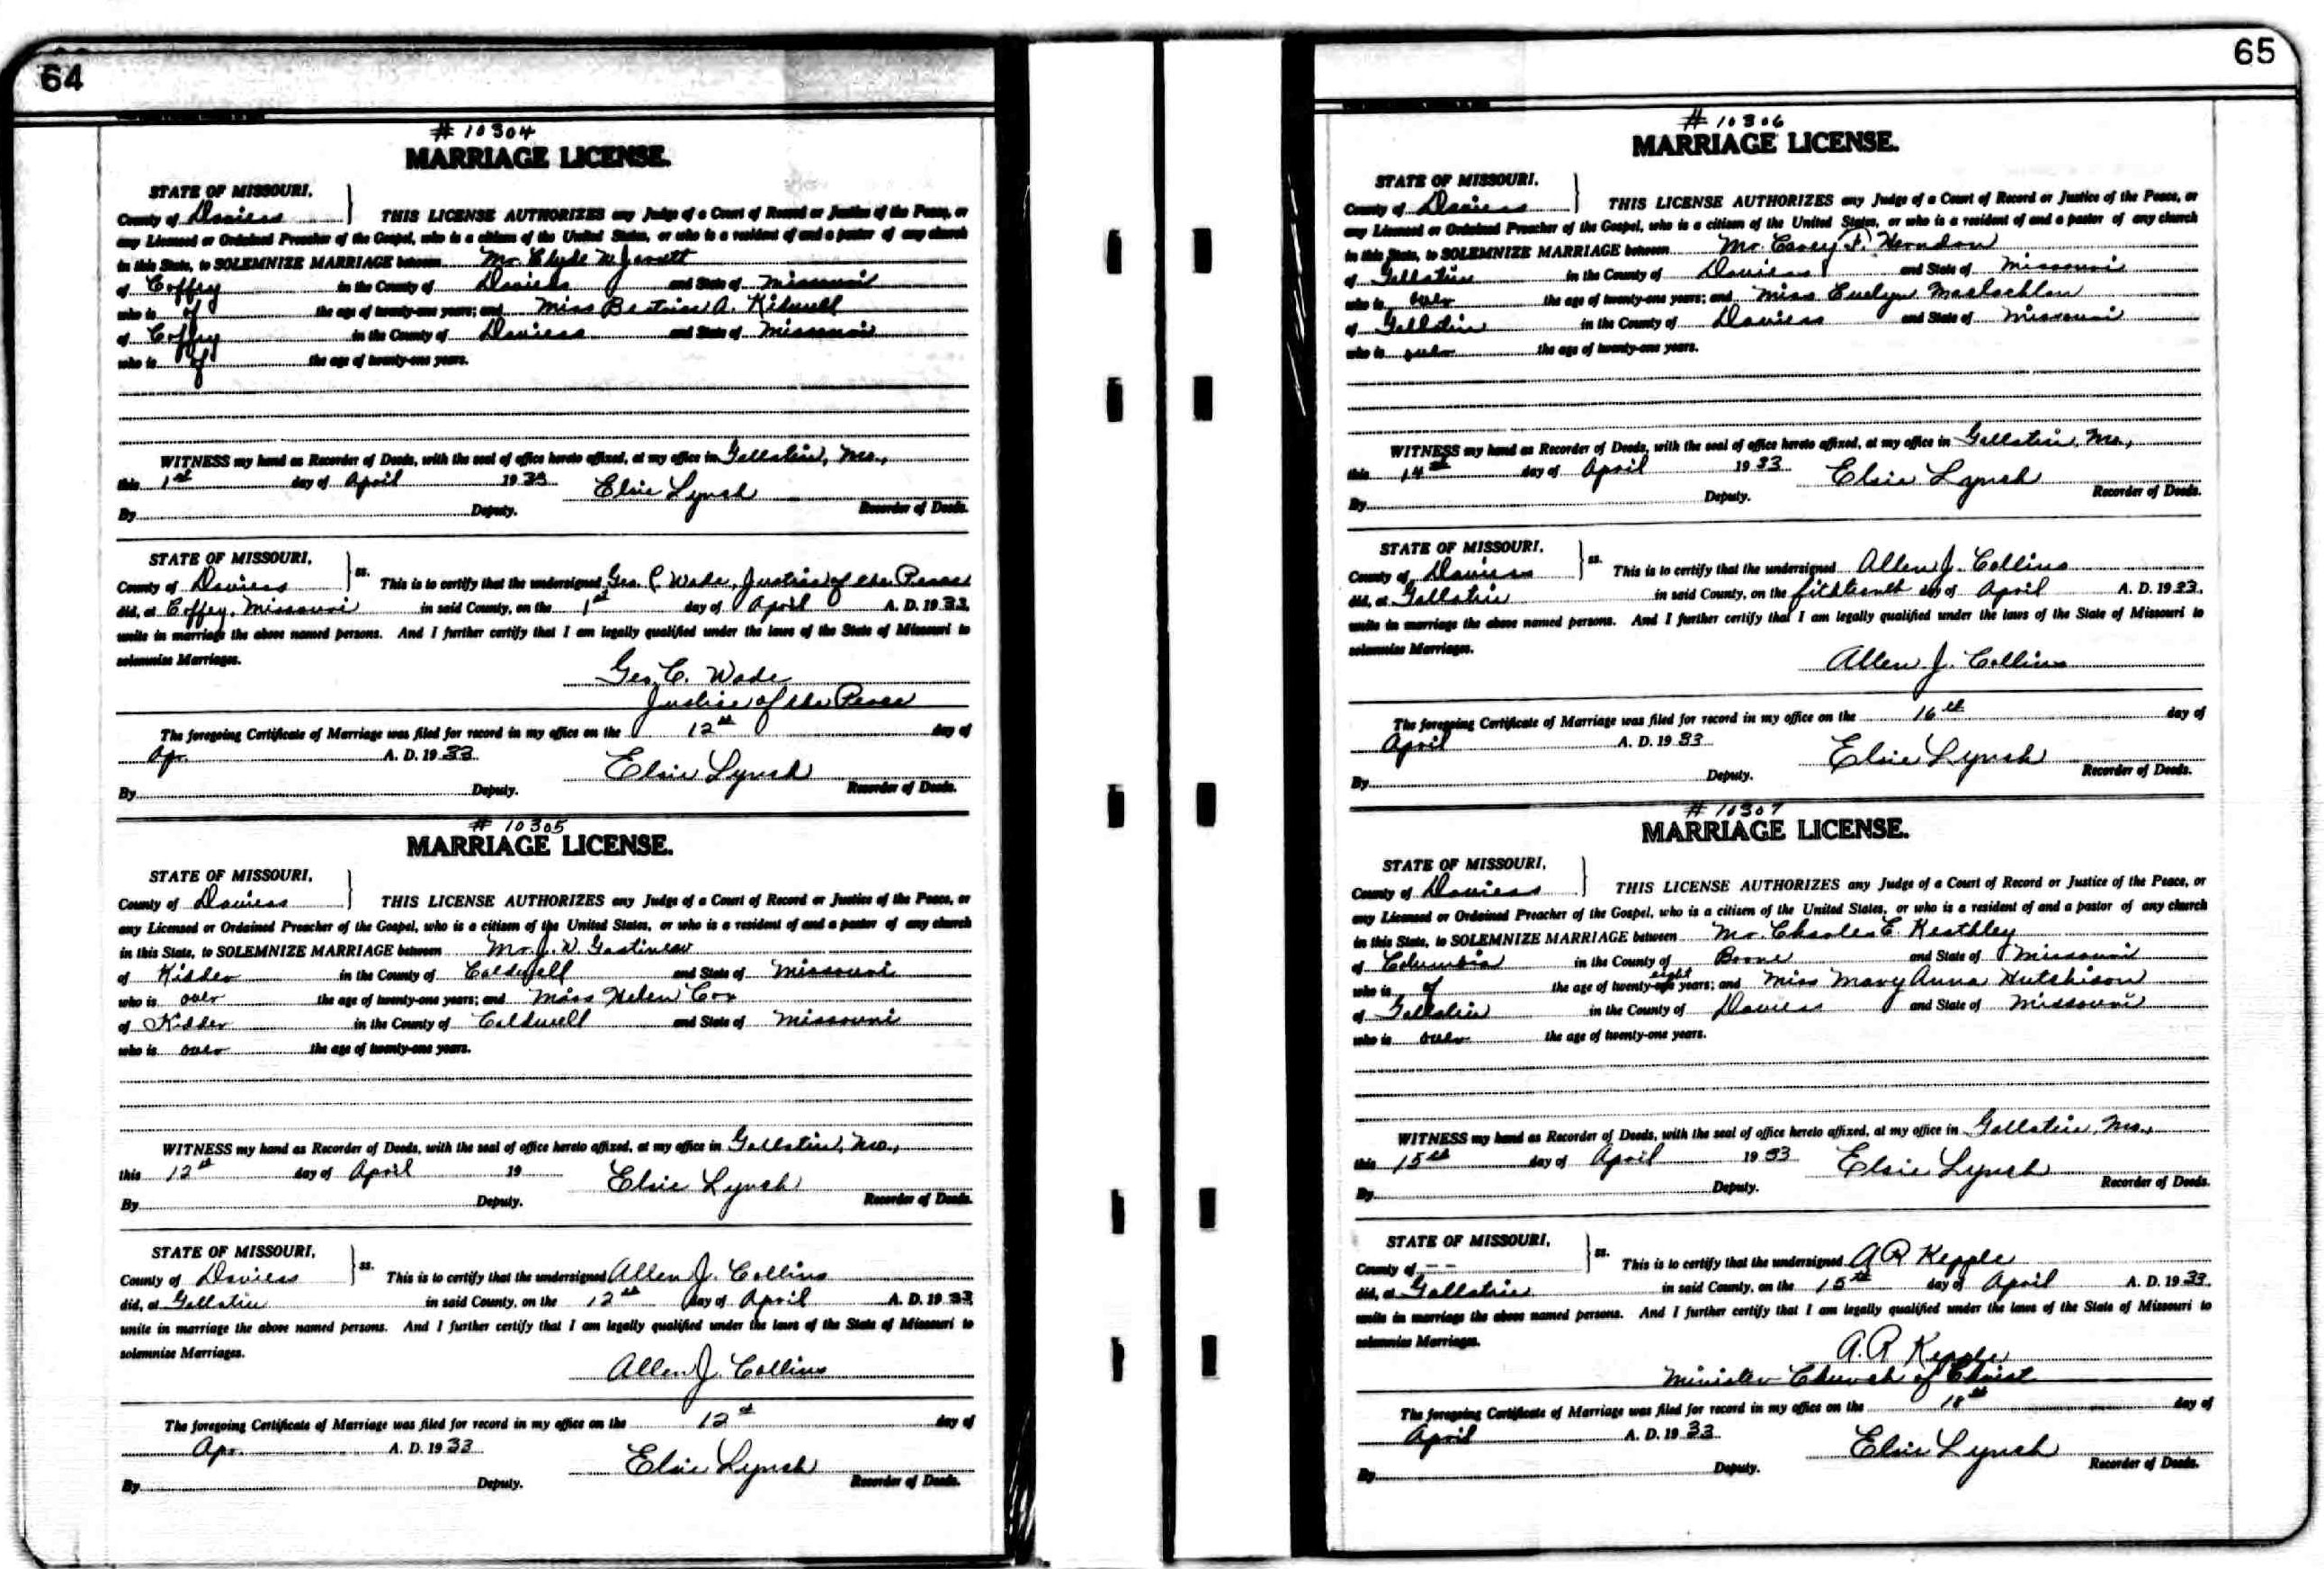 64
# 10304
MARRIAGE LICENSE.
STATE OF MISSOURI,
County of Daviess THIS LICENSE AUTHORIZES any Judge of a Court of Record or Justice of the Peace, or
any Licensed or Ordained Preacher of the Gospel, who is a citizen of the United States, or who is a resident of and a pastor of any church
in this State, to SOLEMNIZE MARRIAGE between Mr. Clyde Jarrett
of Coffey in the County of Daviess and State of Missouri
who is of the age of twenty-one years; and Miss Beatrice A. Kidwell
of Coffey in the County of Daviess and State of Missouri
who is of the age of twenty-one years.
WITNESS my hand as Recorder of Deeds, with the seal of office hereto affixed, at my office in Gallatin, Mo.,
this 1st day of April 1933 Elsie Lynch
By Deputy. Recorder of Deeds.
STATE OF MISSOURI,
County of Daviess ss. This is to certify that the undersigned Geo. C Wade, Justice of the Peace
did, at Coffey, Missouri in said County, on the 1st day of April A. D. 1933,
unite in marriage the above named persons. And I further certify that I am legally qualified under the laws of the State of Missouri to
solemnize Marriages.
Geo. C. Wade
Justice of the Peace
The foregoing Certificate of Marriage was filed for record in my office on the 12th day of
Apr. A. D. 1933 Elsie Lynch
By Deputy. Recorder of Deeds.
# 10305
MARRIAGE LICENSE.
STATE OF MISSOURI,
County of Daviess THIS LICENSE AUTHORIZES any Judge of a Court of Record or Justice of the Peace, or
any Licensed or Ordained Preacher of the Gospel, who is a citizen of the United States, or who is a resident of and a pastor of any church
in this State, to SOLEMNIZE MARRIAGE between Mr. J. W. Gastineau
of Kidder in the County of Caldwell and State of Missouri
who is over the age of twenty-one years; and Miss Helen Cox
of Kidder in the County of Caldwell and State of Missouri
who is over the age of twenty-one years.
WITNESS my hand as Recorder of Deeds, with the seal of office hereto affixed, at my office in Gallatin, Mo.,
this 12th day of April 19 Elsie Lynch
By Deputy. Recorder of Deeds.
STATE OF MISSOURI,
County of Daviess ss. This is to certify that the undersigned Allen J. Collins
did, at Gallatin in said County, on the 12th day of April A. D. 1933,
unite in marriage the above named persons. And I further certify that I am legally qualified under the laws of the State of Missouri to
solemnize Marriages.
Allen J. Collins
The foregoing Certificate of Marriage was filed for record in my office on the 12th day of
Apr. A. D. 1933 Elsie Lynch
By Deputy. Recorder of Deeds.
65
# 10306
MARRIAGE LICENSE.
STATE OF MISSOURI,
County of Daviess THIS LICENSE AUTHORIZES any Judge of a Court of Record or Justice of the Peace, or
any Licensed or Ordained Preacher of the Gospel, who is a citizen of the United States, or who is a resident of and a pastor of any church
in this State, to SOLEMNIZE MARRIAGE between Mr. Carey F. Herndon
of Gallatin in the County of Daviess and State of Missouri
who is over the age of twenty-one years; and Miss Evelyn Maclachlan
of Gallatin in the County of Daviess and State of Missouri
who is over the age of twenty-one years.
WITNESS my hand as Recorder of Deeds, with the seal of office hereto affixed, at my office in Gallatin, Mo.,
this 14th day of April 1933 Elsie Lynch
By Deputy. Recorder of Deeds.
STATE OF MISSOURI,
County of Daviess ss. This is to certify that the undersigned Allen J. Collins
did, at Gallatin in said County, on the fifthteenth day of April A. D. 1933,
unite in marriage the above named persons. And I further certify that I am legally qualified under the laws of the State of Missouri to
solemnize Marriages.
Allen J. Collins
The foregoing Certificate of Marriage was filed for record in my office on the 16th day of
April A. D. 1933 Elsie Lynch
By Deputy. Recorder of Deeds.
# 10307
MARRIAGE LICENSE.
STATE OF MISSOURI,
County of Daviess THIS LICENSE AUTHORIZES any Judge of a Court of Record or Justice of the Peace, or
any Licensed or Ordained Preacher of the Gospel, who is a citizen of the United States, or who is a resident of and a pastor of any church
in this State, to SOLEMNIZE MARRIAGE between Mr. Charles E. Keathley
of Columbia in the County of Boone and State of Missouri
who is of the age of twenty-eight years; and Miss Mary Anna Hutchison
of Gallatin in the County of Daviess and State of Missouri
who is over the age of twenty-one years.
WITNESS my hand as Recorder of Deeds, with the seal of office hereto affixed, at my office in Gallatin, Mo.,
this 15th day of April 1933 Elsie Lynch
By Deputy. Recorder of Deeds.
STATE OF MISSOURI,
County of -- ss. This is to certify that the undersigned A R Kepple
did, at Gallatin in said County, on the 15th day of April A. D. 1933,
unite in marriage the above named persons. And I further certify that I am legally qualified under the laws of the State of Missouri to
solemnize Marriages.
A. R Kepple
Minister Church of Christ
The foregoing Certificate of Marriage was filed for record in my office on the 18th day of
April A. D. 1933 Elsie Lynch
By Deputy. Recorder of Deeds.